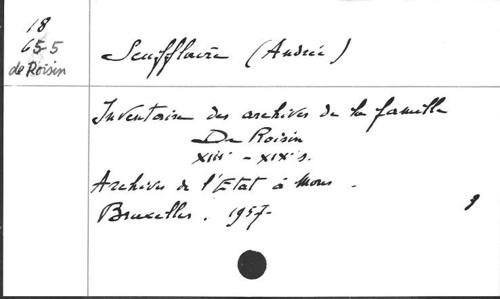 18
65-5
de Roisin
Scufflaire (Andrée)
Inventaire des archives de la famille
De Roisin
XIIIe - XIXe s.
Archives de l'Etat à Mons.
Bruxelles. 1957